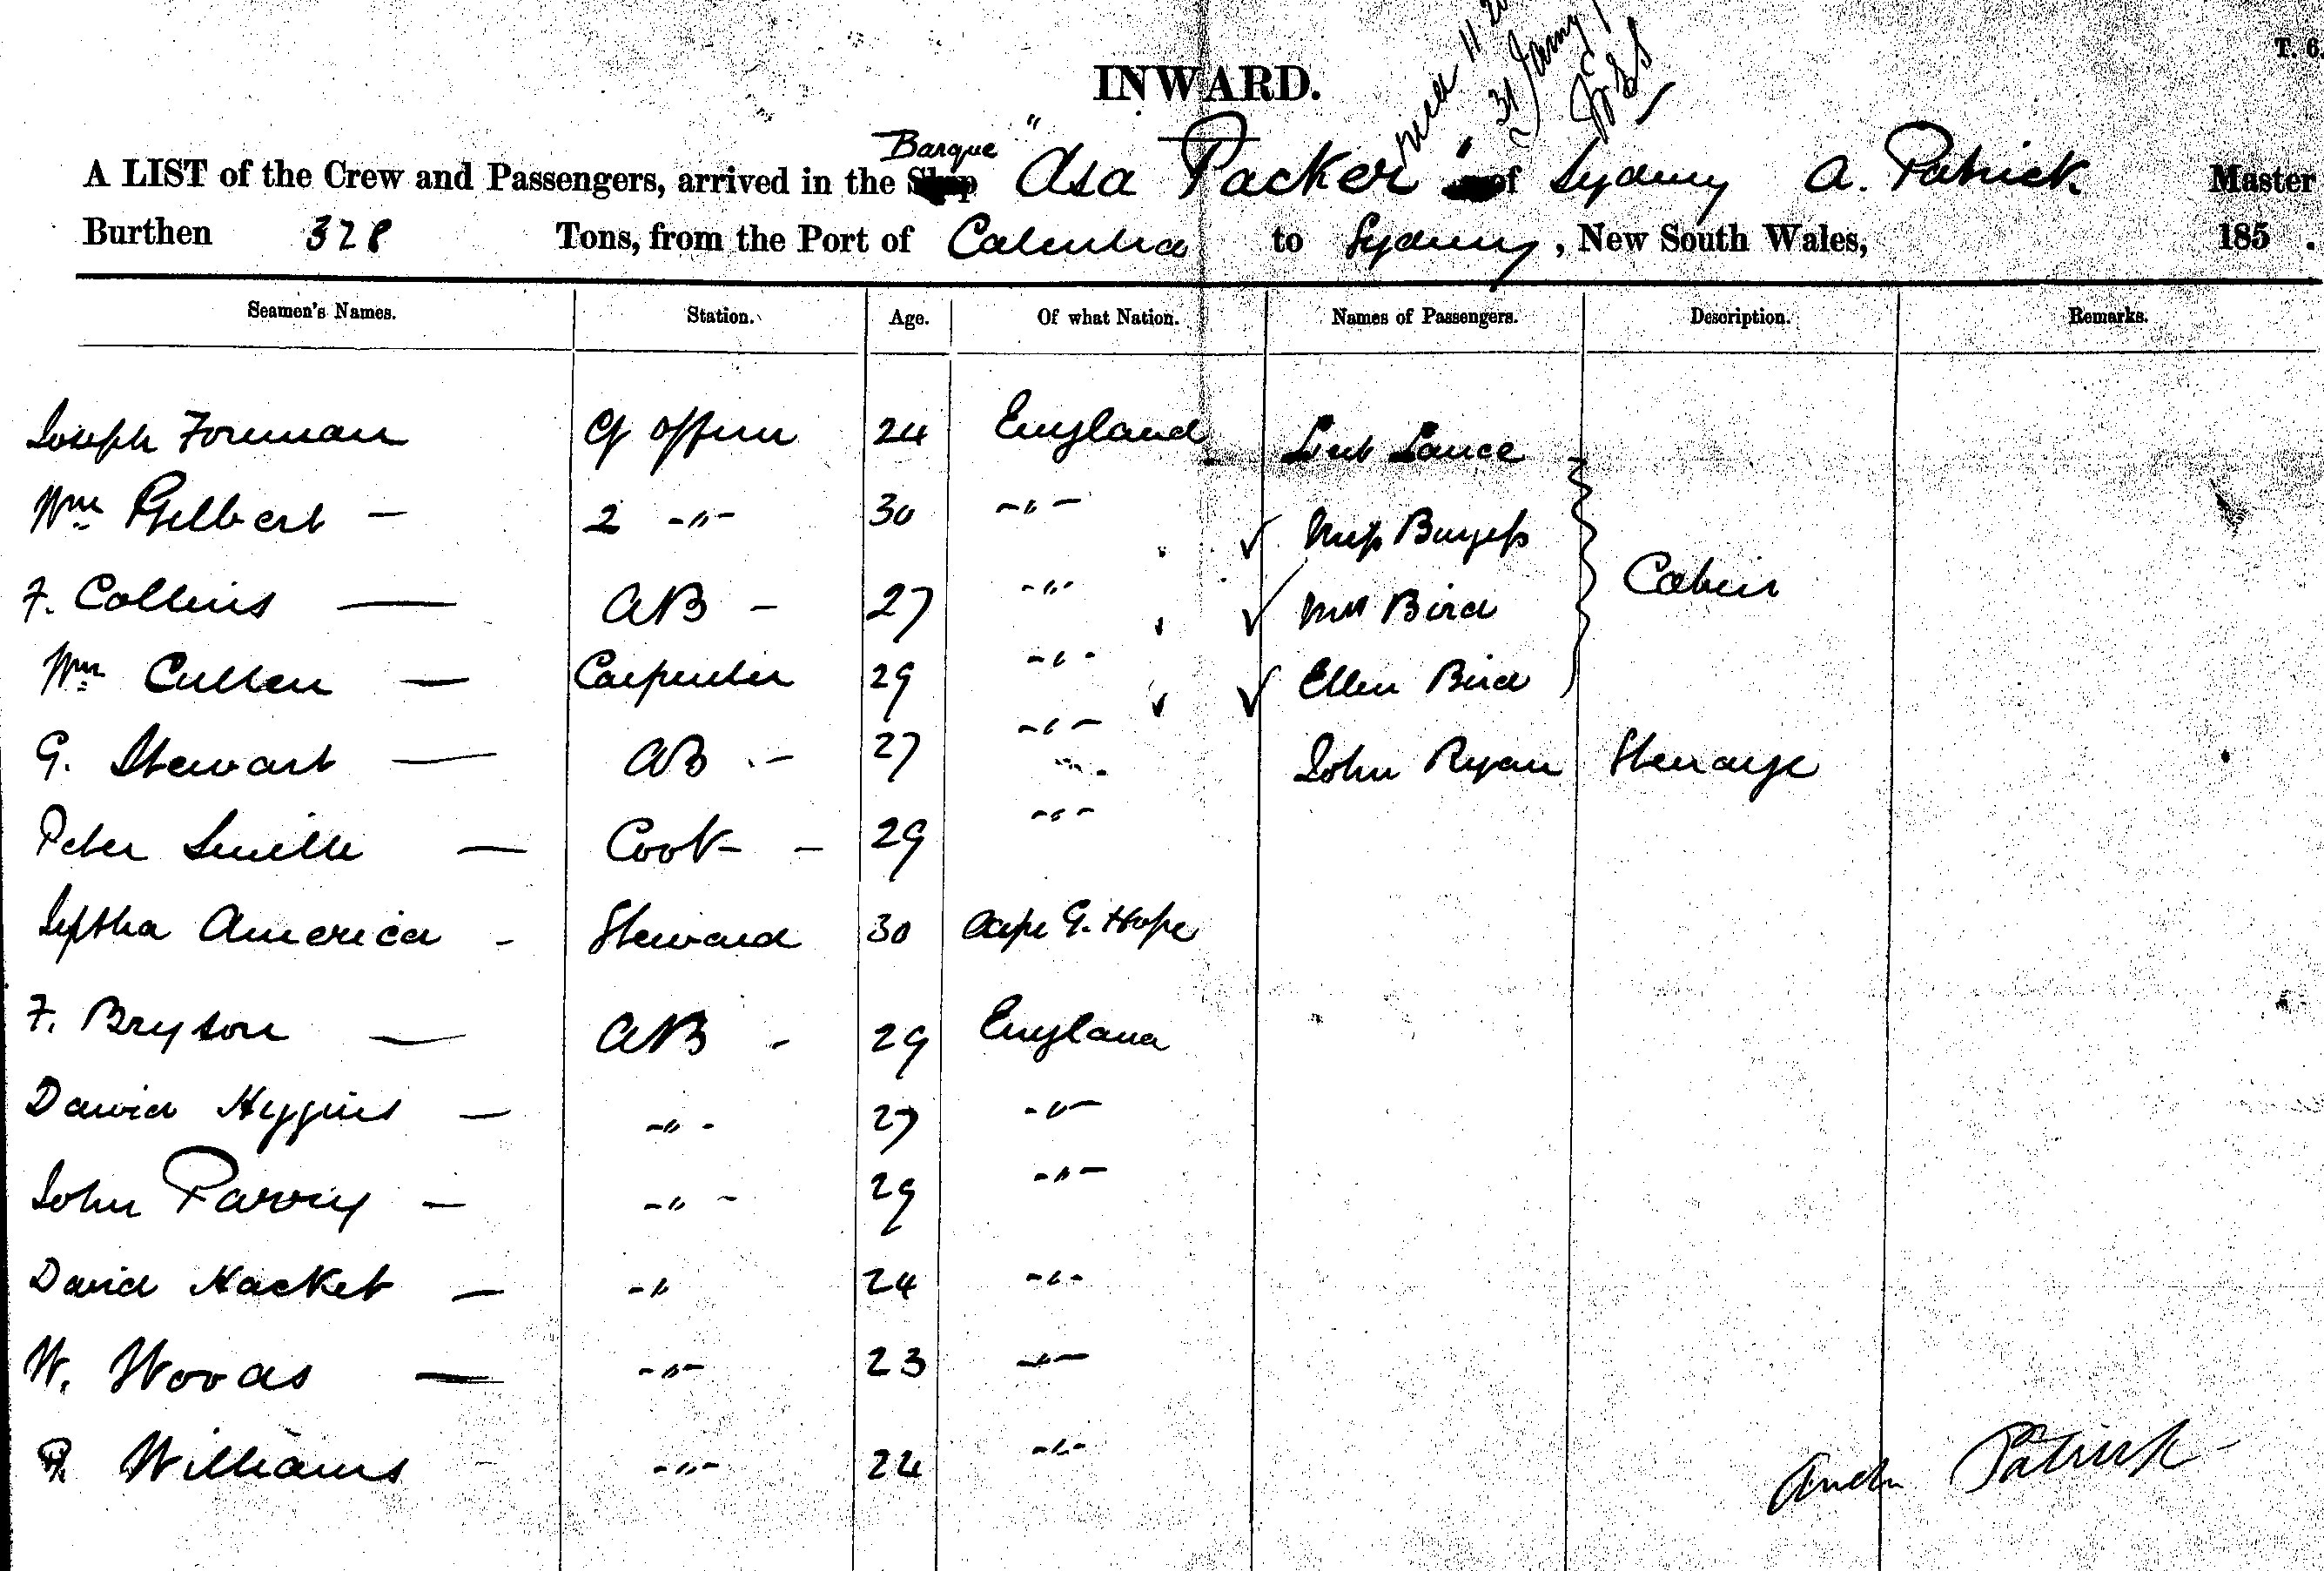 T. 6.
INWARD.
31 Jany
Barque
A LIST of the Crew and Passengers, arrived in the Ship "Asa Packer" of Sydney A. Patrick Master
Burthen 328 Tons, from the Port of Calcutta to Sydney, New South Wales, 185 .
Seamen's Names. Station. Age. Of what Nation. Names of Passengers. Description. Remarks.
Joseph Foreman Cf officer 24 England Lieut Lance
Wm Gilbert — 2 -"- 30 -"- Miss Burgess
F. Collins — AB - 27 -"- Mrs Bird Cabin
Wm Cullen — Carpenter 29 -"- Ellen Bird
G. Stewart — AB - 27 -"- John Ryan Steerage
Peter — Cook - 29 -"-
Jeptha America - Steward 30 Cape G. Hope
F. Bryson — AB - 29 England
David Higgins — -"- 27 -"-
John Parry — -"- 29 -"-
David Hacket — -" 24 -"-
W. Woods — -"- 23 -"-
Williams -"- 24 -"-
Andw Patrick